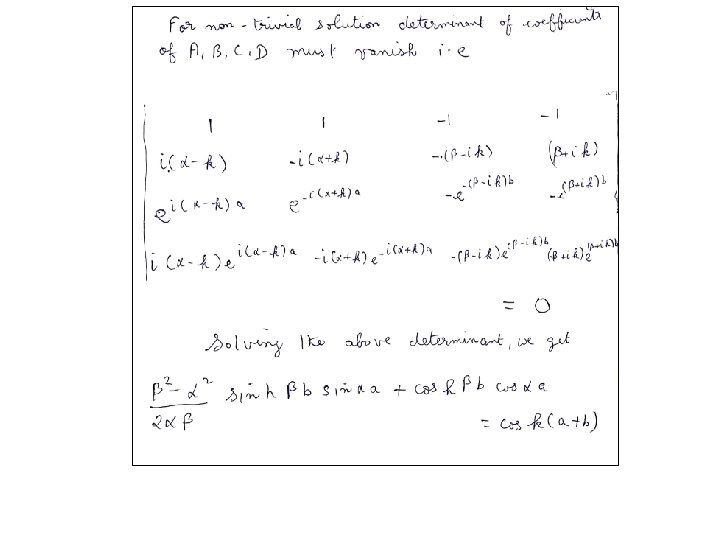 For non-trivial solution determinant of coefficients
of A, B, C, D must vanish i.e
1 1 -1 -1
i(α-k) -i(α+k) -(β-ik) (β+ik)
e^{i(α-k)a} e^{-i(α+k)a} -e^{-(β-ik)b} -e^{(β+ik)b}
i(α-k)e^{i(α-k)a} -i(α+k)e^{-i(α+k)a} -(β-ik)e^{-(β-ik)b} (β+ik)e^{(β+ik)b}
= 0
Solving the above determinant, we get
\frac{β²-α²}{2αβ} sinh βb sin αa + cosh βb cos αa
= cos k(a+b)